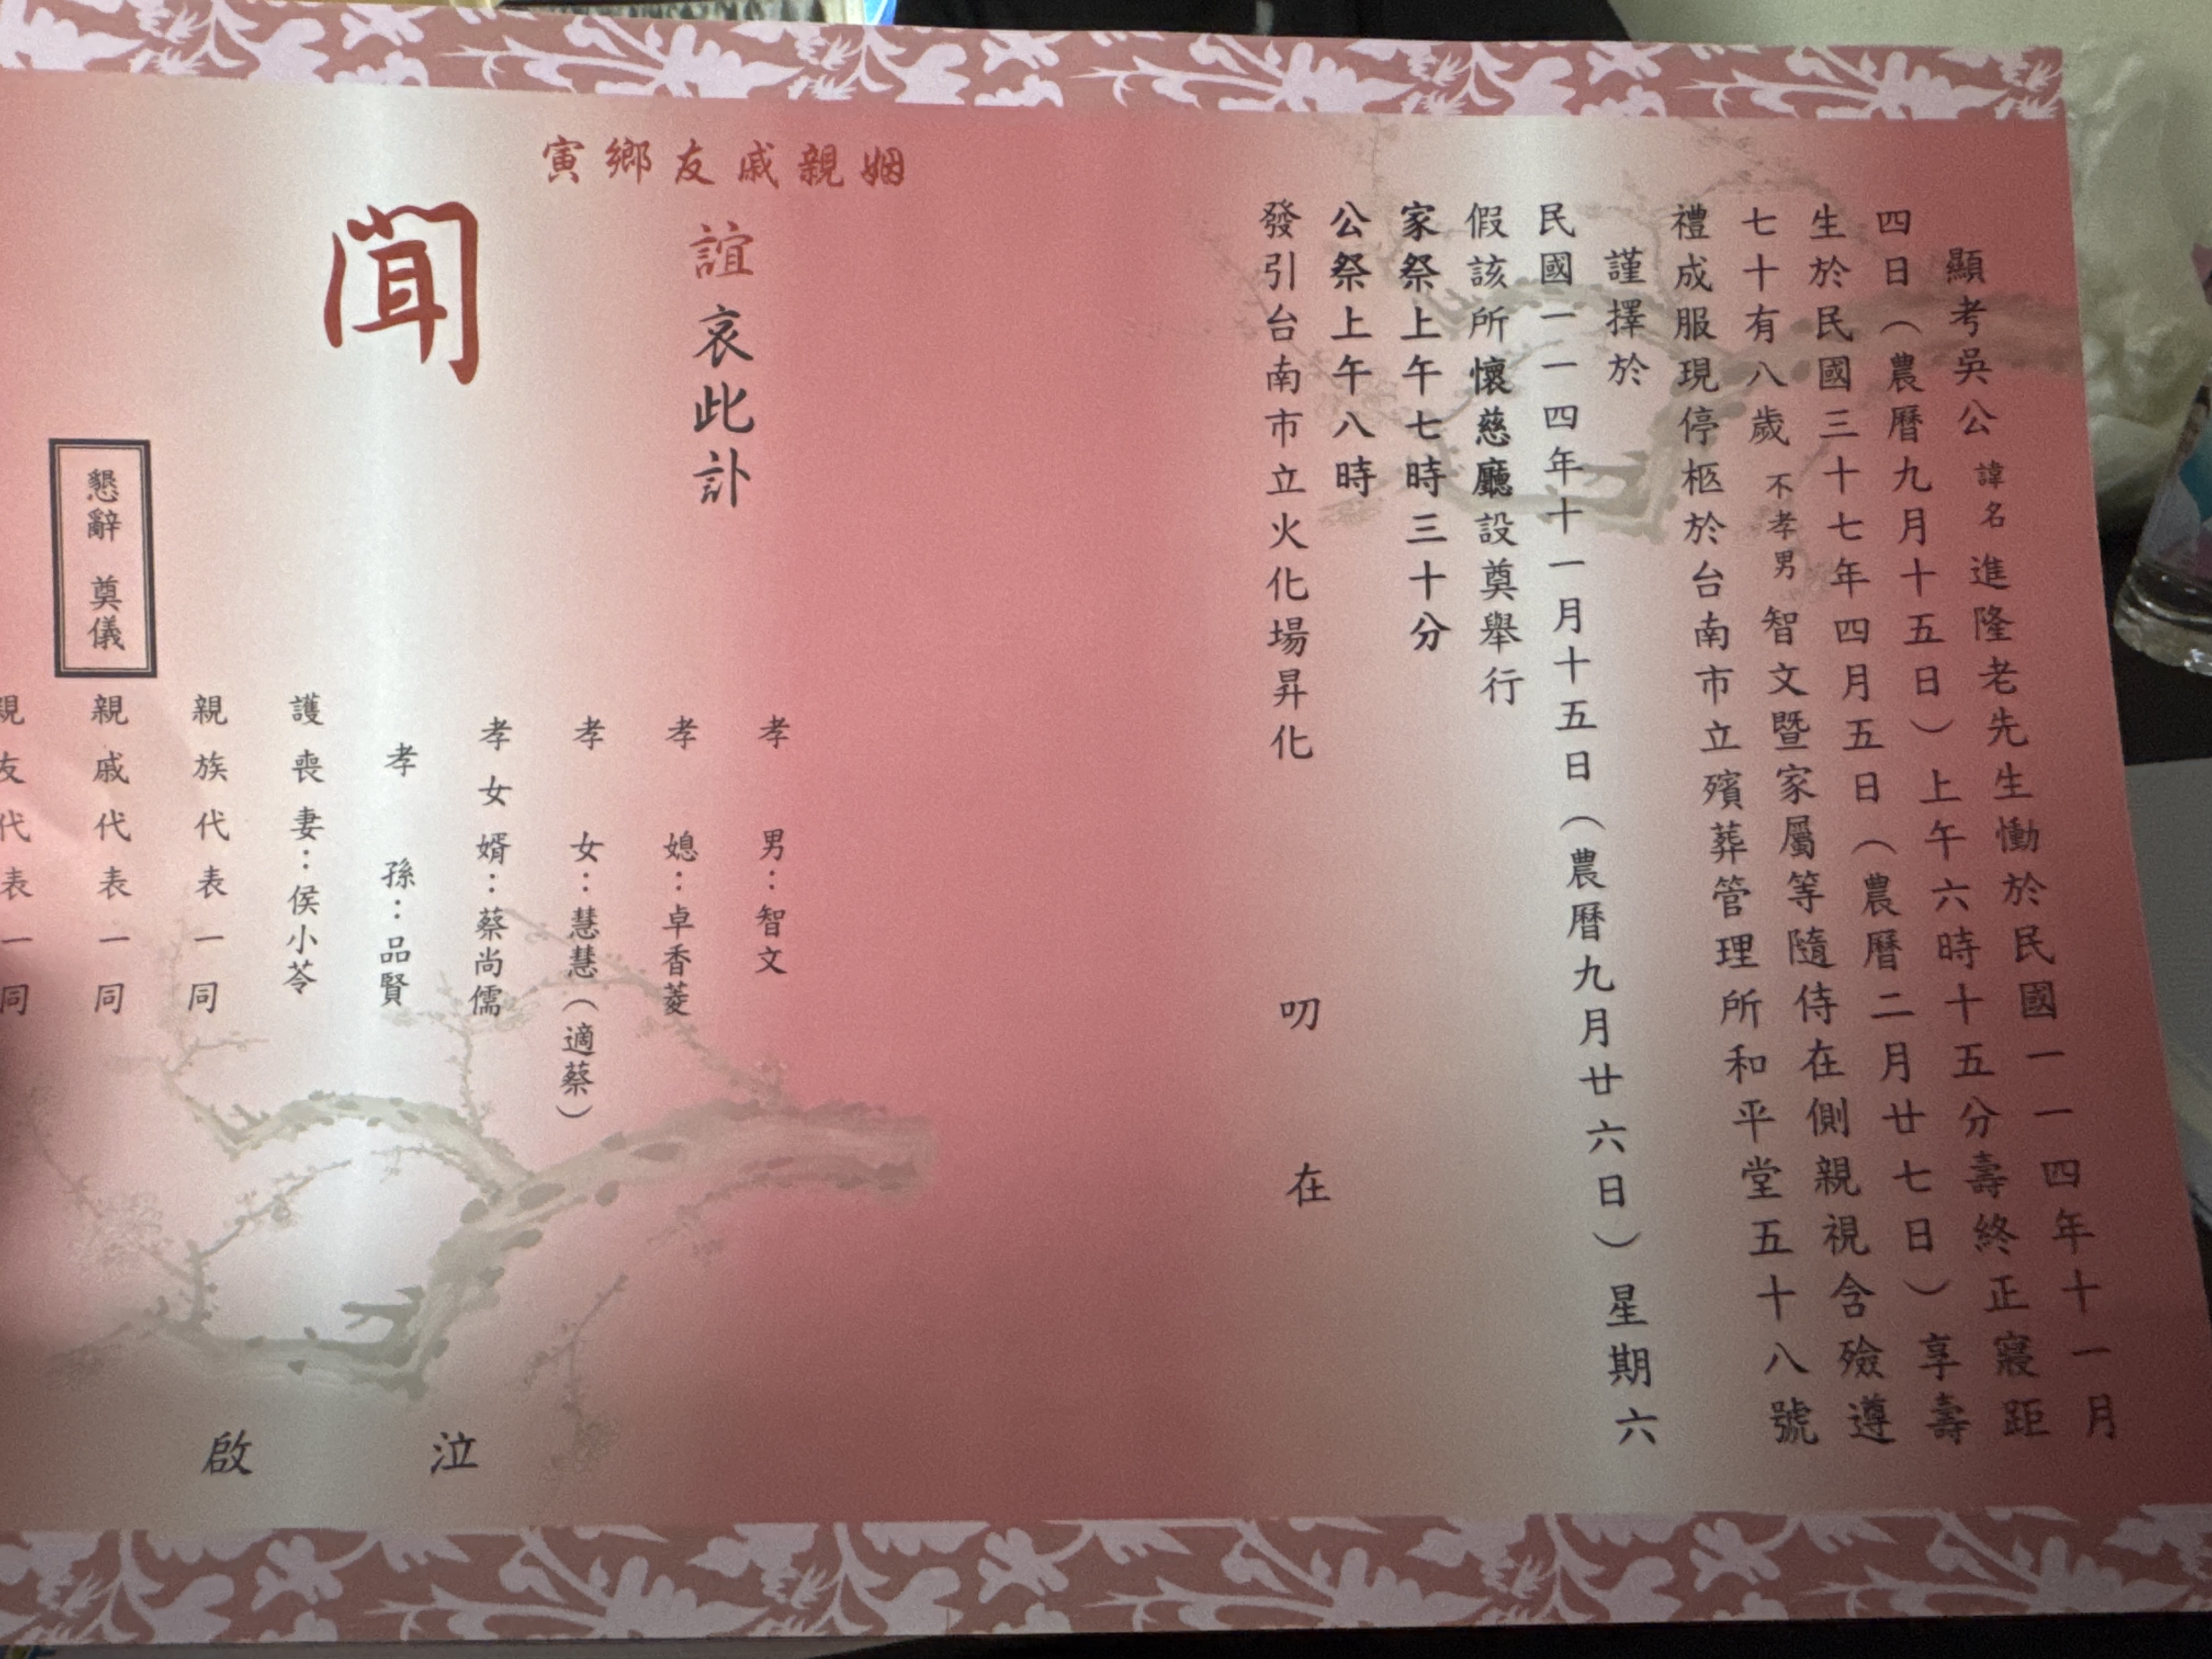 顯考吳公諱名進隆老先生慟於民國一一四年十一月
四日（農曆九月十五日）上午六時十五分壽終正寢距
生於民國三十七年四月五日（農曆二月廿七日）享壽
七十有八歲不孝男智文暨家屬等隨侍在側親視含殮遵
禮成服現停柩於台南市立殯葬管理所和平堂五十八號
謹擇於
民國一一四年十一月十五日（農曆九月廿六日）星期六
假該所懷慈廳設奠舉行
家祭上午七時三十分
公祭上午八時
發引台南市立火化場昇化
叨在
姻親戚友鄉寅
誼哀此訃
聞
孝男：智文
孝媳：卓香菱
孝女：慧慧（適蔡）
孝女婿：蔡尚儒
孝孫：品賢
護喪妻：侯小苓
親族代表一同
親戚代表一同
親友代表一同
泣啟
懇辭 奠儀